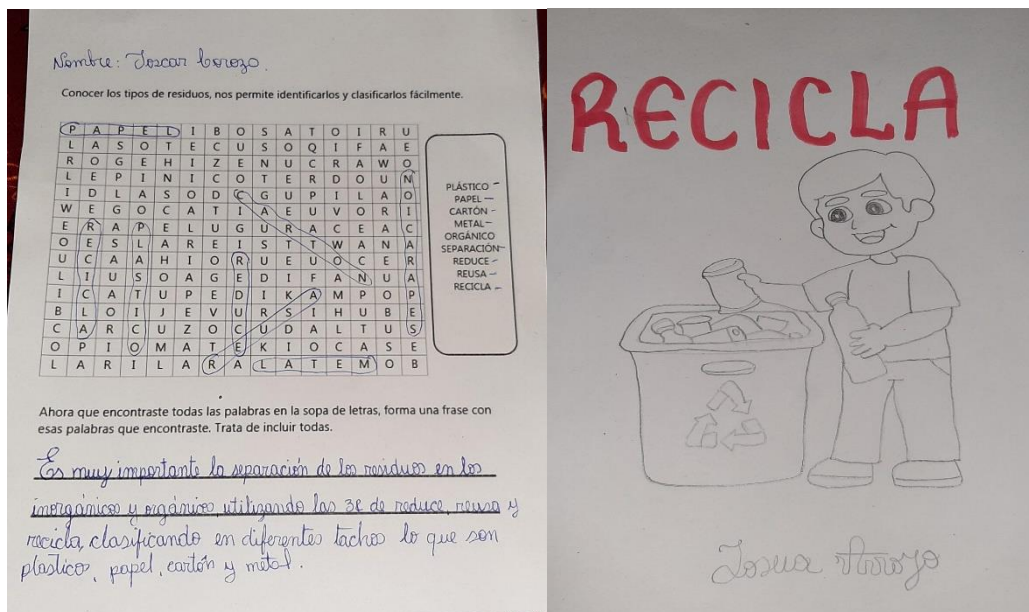 Nombre: Joscar Corozo.
Conocer los tipos de residuos, nos permite identificarlos y clasificarlos fácilmente.
P A P E L I B O S A T O I R U
L A S O T E C U S O Q I F A E
R O G E H I Z E N U C R A W O
L E P I N I C O T E R D O U N
I D L A S O D C G U P I L A O
W E G O C A T I A E U V O R I
E R A P E L U G U R A C E A C
O E S L A R E I S T T W A N A
U C A A H I O R U E U O C E R
L I U S O A G E D I F A N U A
I C A T U P E D I K A M P O P
B L O I J E V U R S I H U B E
C A R C U Z O C U D A L T U S
O P I O M A T E K I O C A S E
L A R I L A R A L A T E M O B
PLÁSTICO
PAPEL
CARTÓN
METAL
ORGÁNICO
SEPARACIÓN
REDUCE
REUSA
RECICLA
Ahora que encontraste todas las palabras en la sopa de letras, forma una frase con
esas palabras que encontraste. Trata de incluir todas.
Es muy importante la separación de los residuos en los
inorgánicos y orgánicos, utilizando las 3R de reduce, reusa y
recicla, clasificando en diferentes tachos lo que son
plastico, papel, cartón y metal.
RECICLA
Josua Arroyo